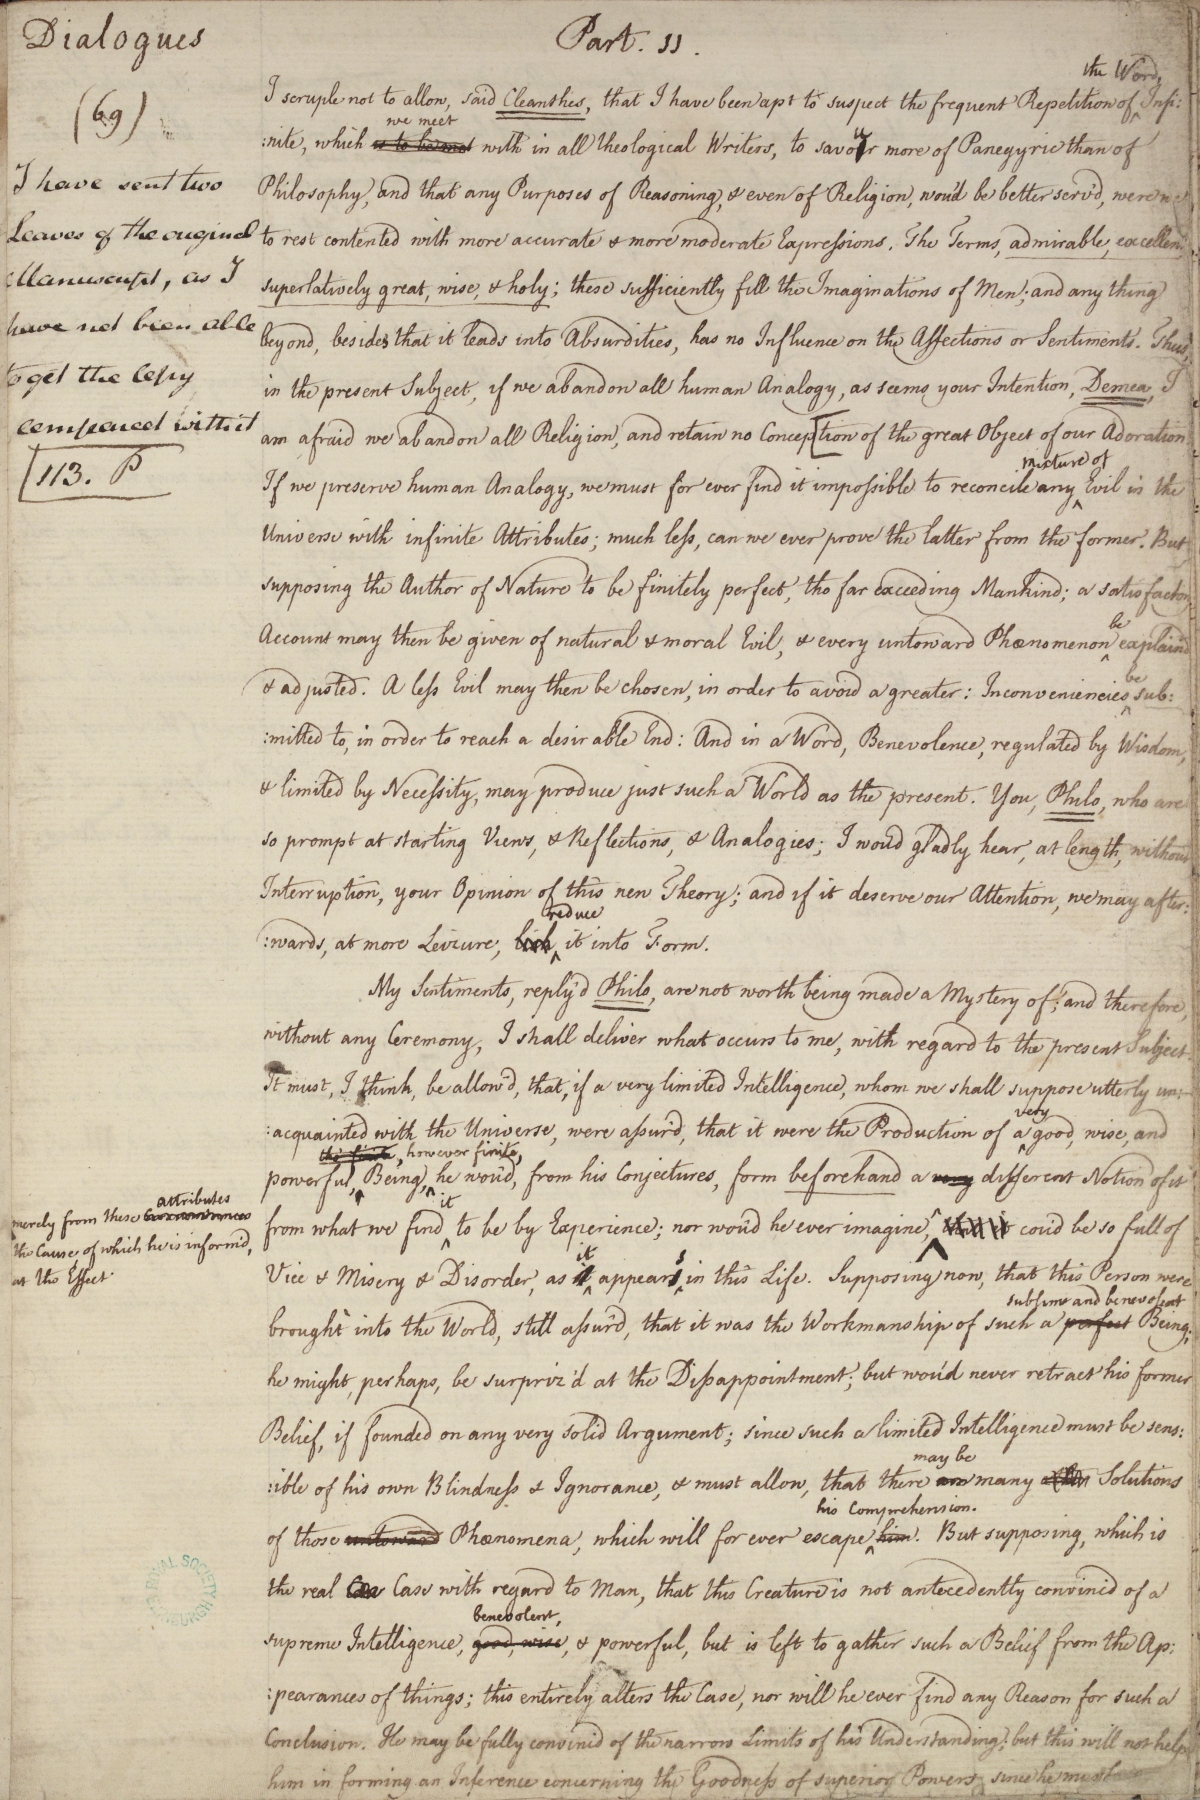 Dialogues
(69)
I have sent two
Leaves of the original
Manuscript, as I
have not been able
to get the Copy
compared with it
113. P
Part. 11.
the Word,
I scruple not to allow, said Cleanthes, that I have been apt to suspect the frequent Repetition of Infi:
we meet
:nite, which with in all theological Writers, to savour more of Panegyric than of
Philosophy, and that any Purposes of Reasoning, & even of Religion, wou'd be better serv'd, were we
to rest contented with more accurate & more moderate Expressions. The Terms, admirable, excellent
superlatively great, wise, & holy; these sufficiently fill the Imaginations of Men; and any thing
beyond, besides that it leads into Absurdities, has no Influence on the Affections or Sentiments. Thus,
in the present Subject, if we abandon all human Analogy, as seems your Intention, Demea, I
am afraid we abandon all Religion, and retain no Conception of the great Object of our Adoration
mixture of
If we preserve human Analogy, we must for ever find it impossible to reconcile any Evil in the
Universe with infinite Attributes; much less, can we ever prove the latter from the former. But
supposing the Author of Nature to be finitely perfect, tho far exceeding Mankind; a satisfactory
be
Account may then be given of natural & moral Evil, & every untoward Phænomenon explain'd
be
& adjusted. A less Evil may then be chosen, in order to avoid a greater: Inconveniencies sub:
:mitted to, in order to reach a desirable End: And in a Word, Benevolence, regulated by Wisdom,
& limited by Necessity, may produce just such a World as the present. You, Philo, who are
so prompt at starting Views, & Reflections, & Analogies; I wou'd gladly hear, at length, without
Interruption, your Opinion of this new Theory; and if it deserve our Attention, we may after:
reduce
:wards, at more Leizure, it into Form.
My Sentiments, reply'd Philo, are not worth being made a Mystery of; and therefore,
without any Ceremony, I shall deliver what occurs to me, with regard to the present Subject.
It must, I think, be allow'd, that, if a very limited Intelligence, whom we shall suppose utterly un:
very
:acquainted with the Universe, were assur'd, that it were the Production of a good, wise, and
, however finite,
powerful Being, he wou'd, from his Conjectures, form beforehand a very different Notion of it
it
from what we find to be by Experience; nor wou'd he ever imagine, it cou'd be so full of
attributes
merely from these Circumstances
the Cause of which he is inform'd,
at the Effect.
it s
Vice & Misery & Disorder, as it appears in this Life. Supposing now, that this Person were
sublime and benevolent
brought into the World, still assur'd, that it was the Workmanship of such a perfect Being;
he might, perhaps, be surpriz'd at the Disappointment; but wou'd never retract his former
Belief, if founded on any very solid Argument; since such a limited Intelligence must be sens:
may be
:ible of his own Blindness & Ignorance, & must allow, that there are many Solutions
his Comprehension.
of those untoward Phænomena, which will for ever escape him. But supposing, which is
the real Case with regard to Man, that this Creature is not antecedently convinc'd of a
benevolent,
supreme Intelligence, good, wise, & powerful, but is left to gather such a Belief from the Ap:
:pearances of things; this entirely alters the Case, nor will he ever find any Reason for such a
Conclusion. He may be fully convinc'd of the narrow Limits of his Understanding; but this will not help
him in forming an Inference concerning the Goodness of superior Powers, since he must
ROYAL SOCIETY EDINBURGH